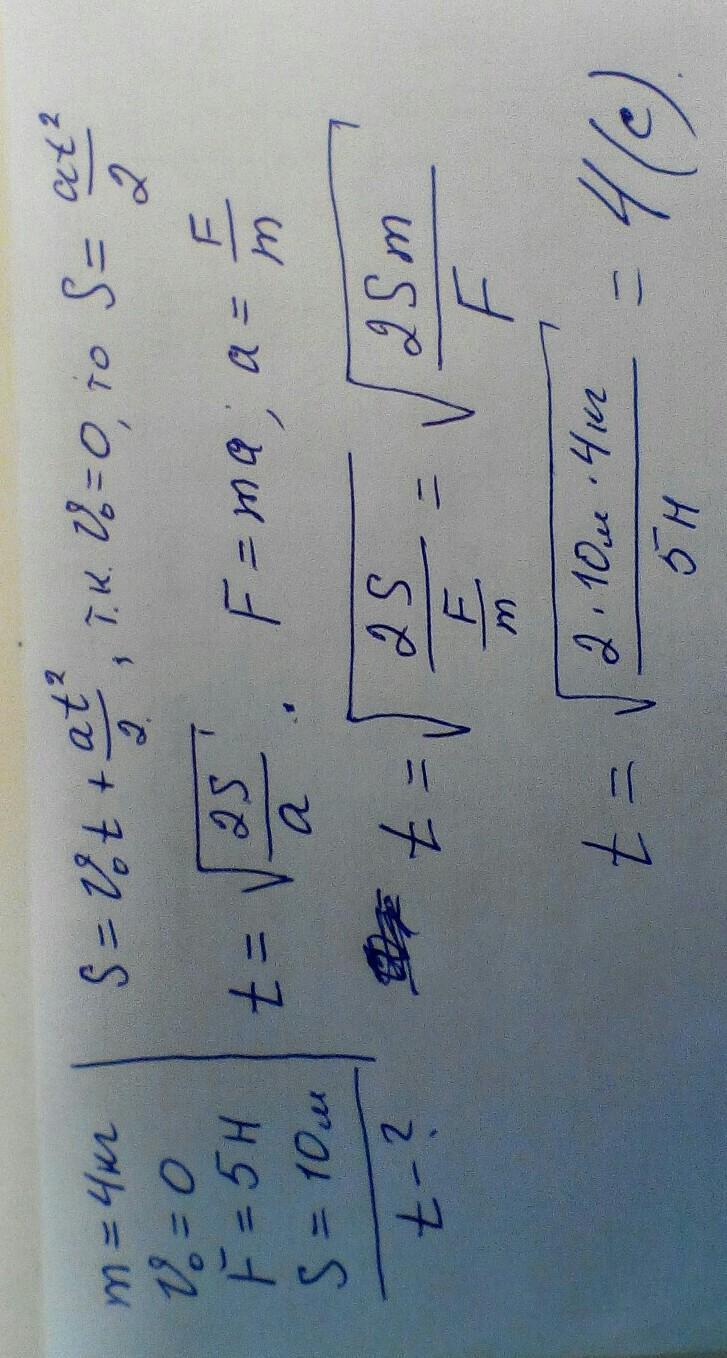 m = 4кг
V₀ = 0
F = 5Н
S = 10м
t - ?
S = V₀t + at²/2, т.к. V₀ = 0, то S = at²/2
t = √(2S/a). F = ma; a = F/m
t = √(2S/(F/m)) = √(2Sm/F)
t = √(2·10м·4кг/5Н) = 4(с).